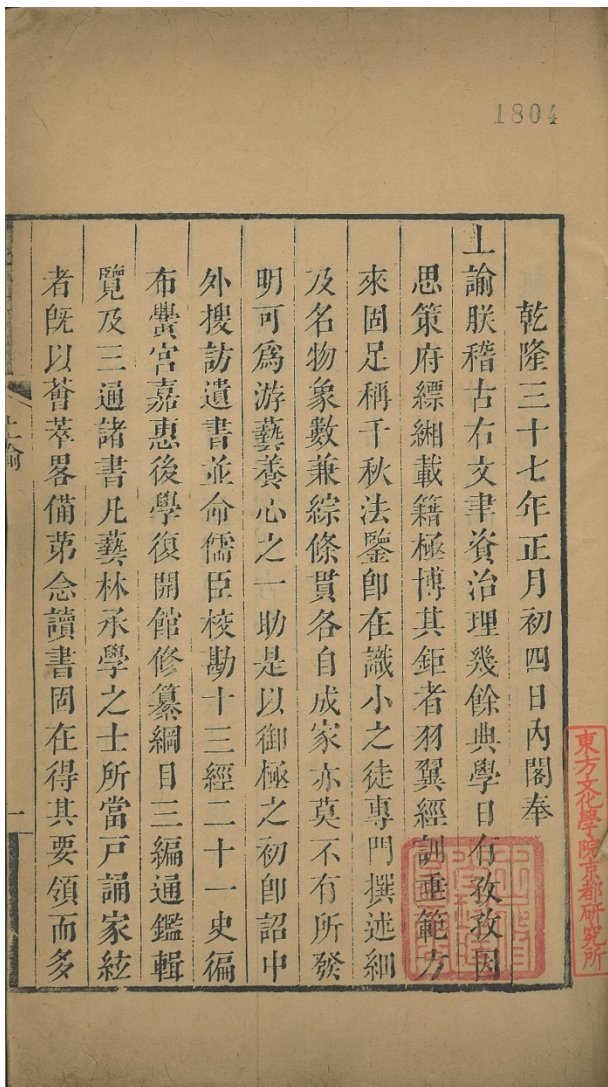 1804
乾隆三十七年正月初四日內閣奉
上諭朕稽古右文聿資治理幾餘典學日有孜孜因
思策府縹緗載籍極博其鉅者羽翼經訓垂範方
來固足稱千秋法鑒卽在識小之徒專門撰述細
及名物象數兼綜條貫各自成家亦莫不有所發
明可爲游藝養心之一助是以御極之初卽詔中
外搜訪遺書並命儒臣校勘十三經二十一史徧
布黌宮嘉惠後學復開館修纂綱目三編通鑑輯
覽及三通諸書凡藝林承學之士所當戶誦家絃
者旣以薈萃畧備第念讀書固在得其要領而多
上諭
一
東方文化學院京都研究所